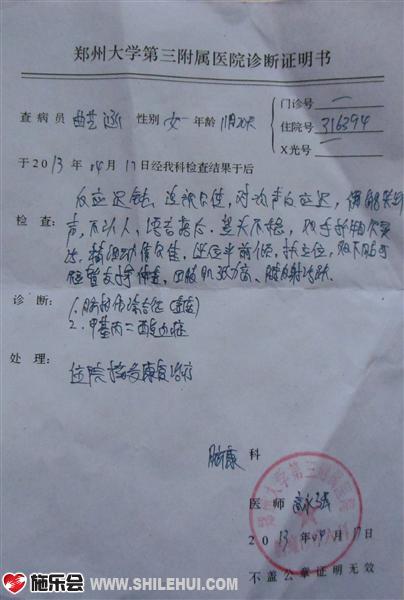 郑州大学第三附属医院诊断证明书
门诊号 一
查病员 曲芝 性别 女 年龄 11月20天 住院号 316394
X光号
于2013年04月17日经我科检查结果于后
反应迟钝、追视欠佳,对动声反应迟,偶能
检查: 声,不认人、语言落后、竖头不稳,双手
精细动作欠佳,坐位 前倾,扶立位,双下肢
短暂支持体重,四肢肌张力高、腱反射活跃
诊断: 1.脑损伤综合征(重度)
2.甲基丙二酸血症
处理:
住院接受康复治疗
脑康 科
郑州大学第三附属医院
医师
2013年04月17日
不盖公章证明无效
施乐会 WWW.SHILEHUI.COM